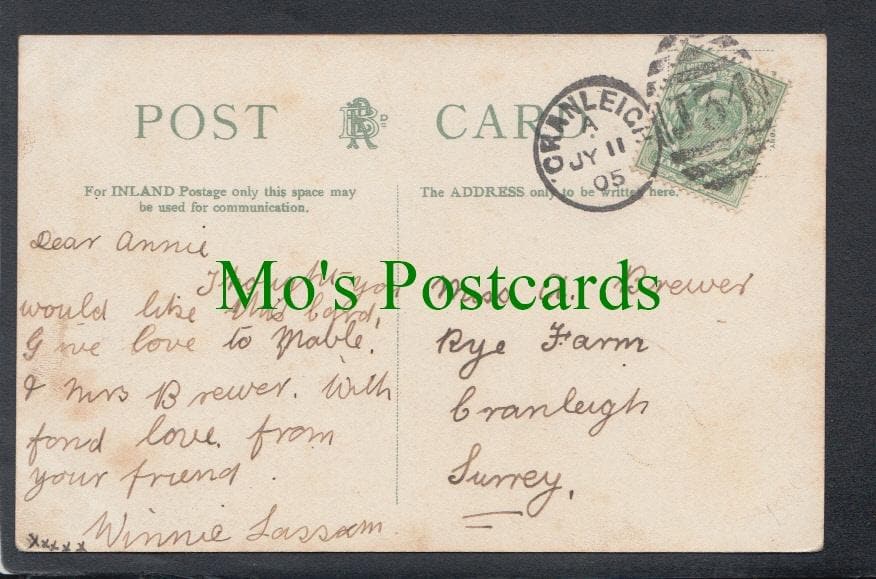 POST CARD
For INLAND Postage only this space may
be used for communication.
The ADDRESS only to be written here.
CRANLEIGH
A
JY 11
05
J54
Dear Annie
Thought you
would like this Card,
Give love to Mable.
& Mrs Brewer. With
fond love. from
your friend.
Winnie Lassam
xxxxx
Miss A. Brewer
Rye Farm
Cranleigh
Surrey,
Mo's Postcards